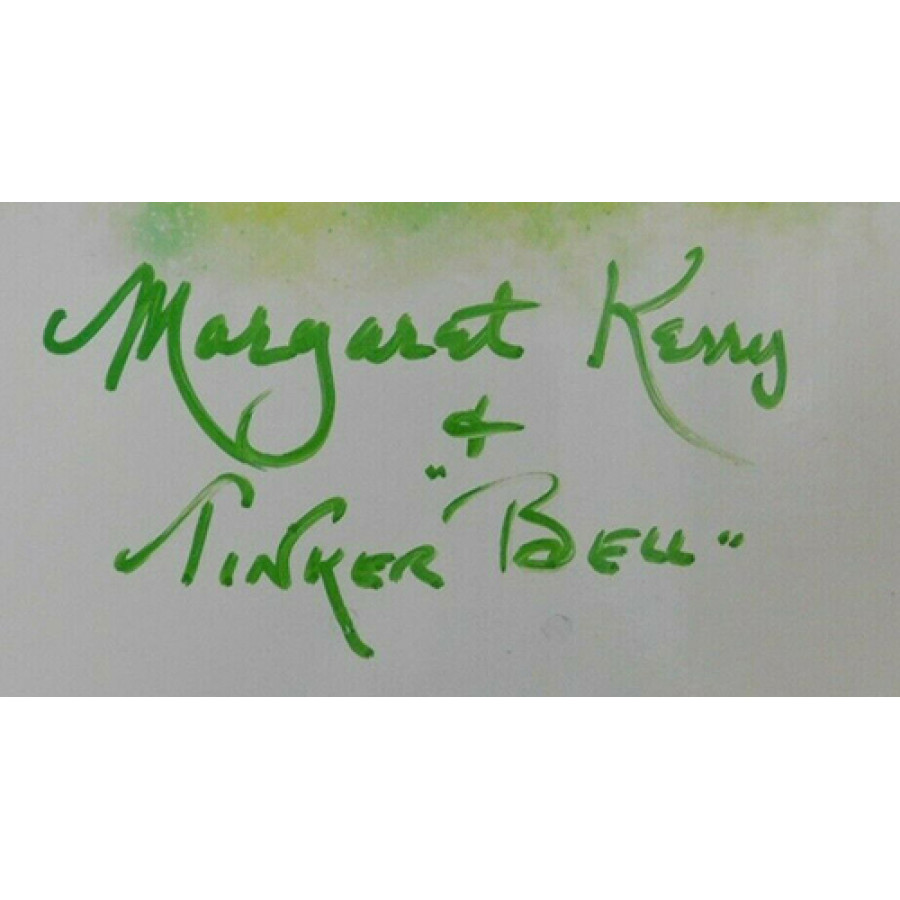 Margaret Kerry
&
Tinker "Bell"